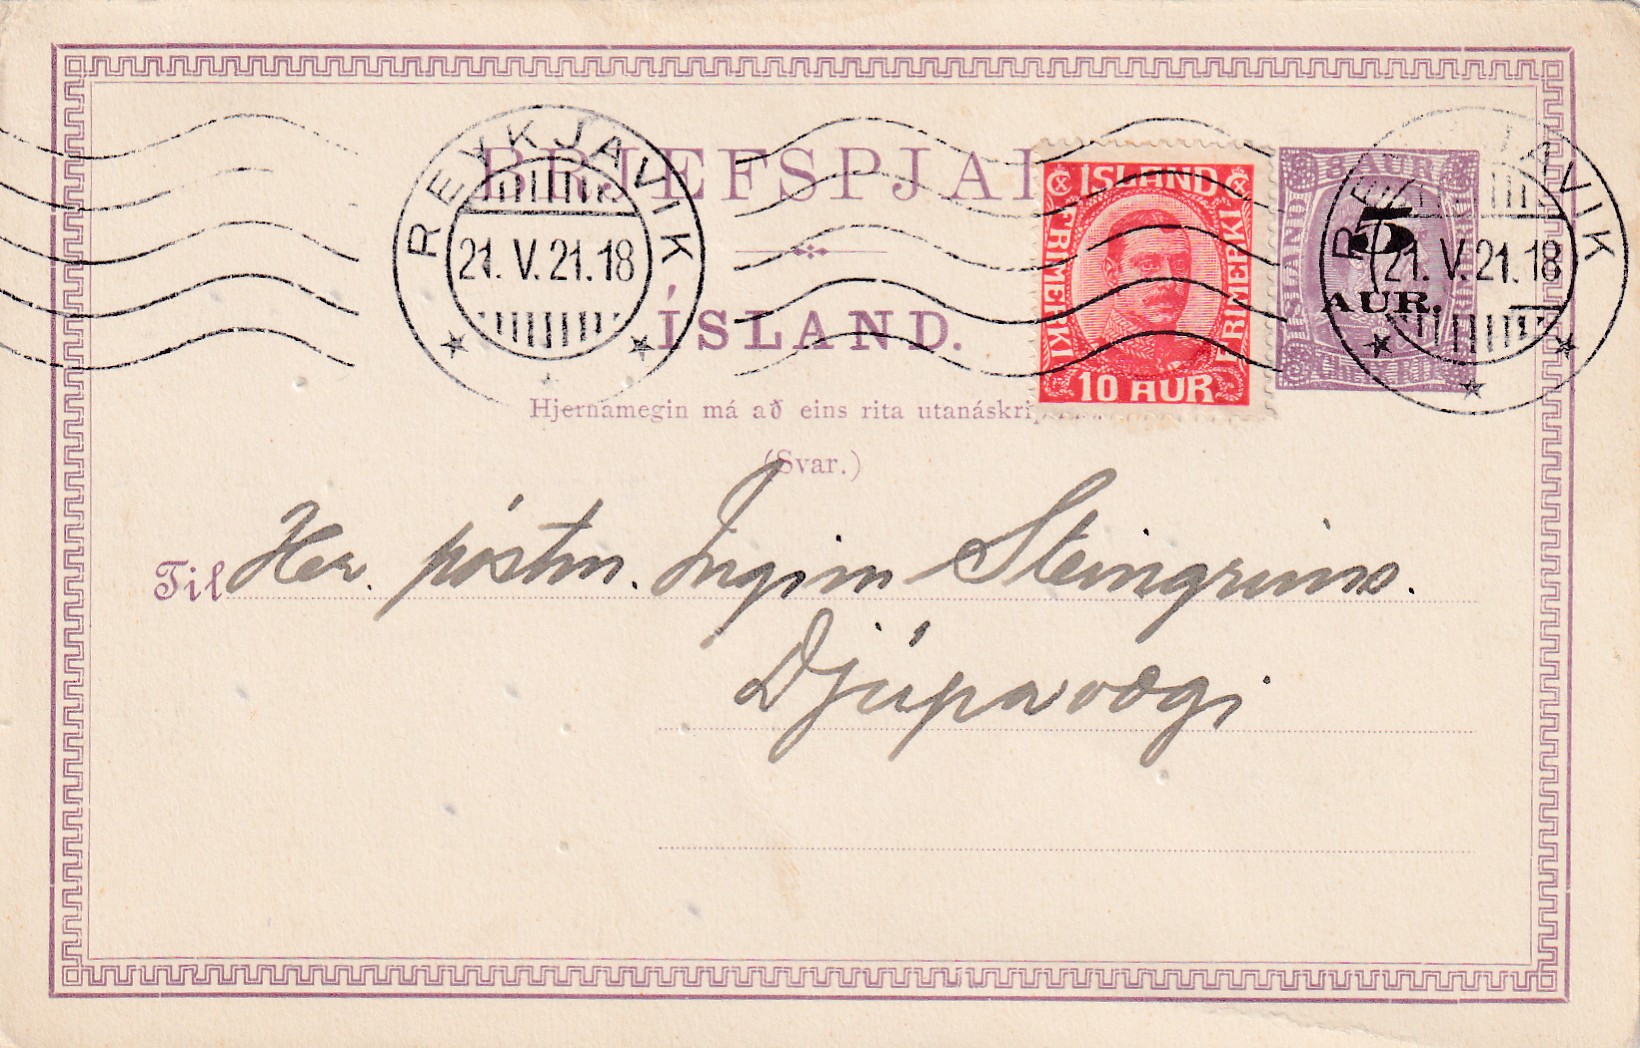 BRJEFSPJAL
ÍSLAND.
Hjernamegin má að eins rita utanáskri
(Svar.)
Til Her. póstm. Ingim Steingrims.
Djúpavogi
REYKJAVIK
21. V. 21. 18
ÍSLAND
FRIMERKI
FRIMERKI
10 AUR
8 AUR
ISLAND
5
AUR.
REYKJAVIK
21. V. 21. 18